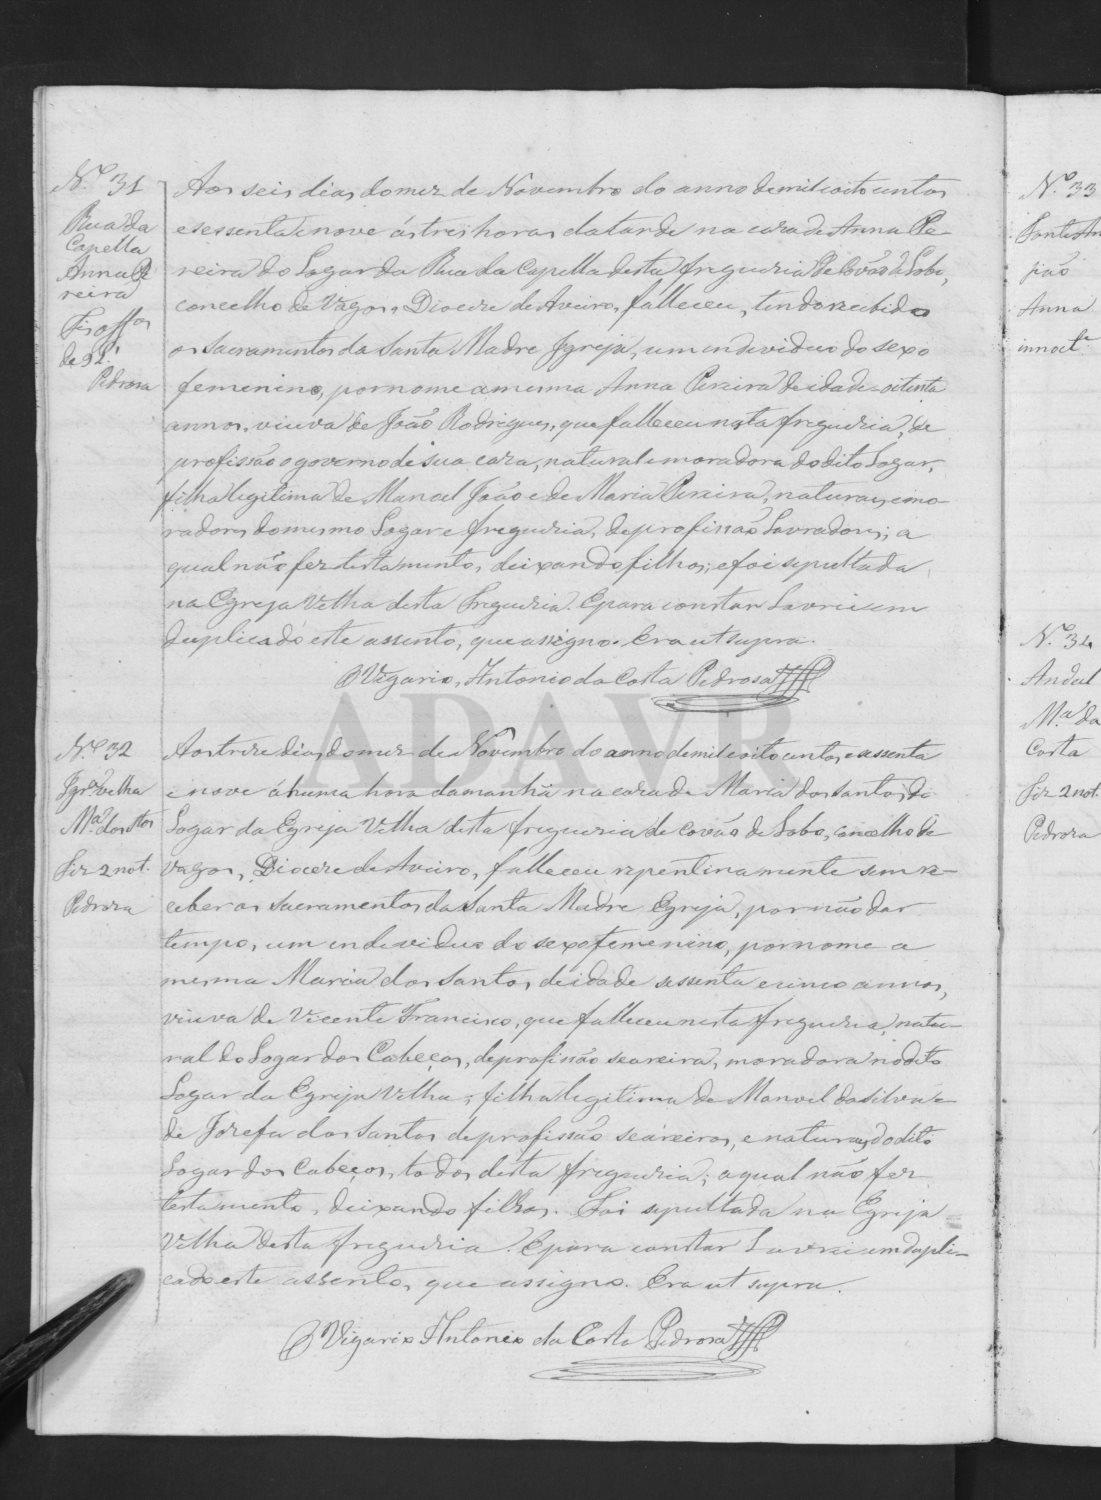 N.º 31
Rua da
Capella
Anna Pe
reira
Fis offos
de 32.
Pedrosa
Aos seis dias do mez de Novembro do anno de mil oito centos
e sessenta e nove ás tres horas da tarde na caza de Anna Pe-
reira do Logar da Rua da Capella desta freguezia de Covão de Lobo,
concelho de Vagos, Diocese de Aveiro, falleceu, tendo recebido
os sacramentos da Santa Madre Igreja, um individuo do sexo
femenino, por nome a mesma Anna Pereira de idade oitenta
annos, viuva de João Rodrigues, que falleceu nesta freguezia, de
profissão o governo de sua caza, natural e moradora do dito Logar,
filha legitima de Manoel João e de Maria Pereira, naturaes e mo-
radores do mesmo Logar e freguezia, de profissão Lavradores; a
qual não fez testamento, deixando filhos; e foi sepultada
na Egreja Velha desta Freguezia. E para constar Lavrei em
duplicado este assento, que assigno. Era ut supra.
O Vigario, Antonio da Costa Pedrosa
N.º 32
Igrª velha
Mª dos Stos
Fiz 2 not.
Pedroza
Aos treze dias do mez de Novembro do anno de mil e oito centos e sessenta
e nove á huma hora da manhã na caza de Maria dos Santos do
Logar da Egreja Velha desta freguezia de Covão de Lobo, concelho de
Vagos, Diocese de Aveiro, falleceu repentinamente sem re-
ceber os sacramentos da Santa Madre Egreja, por não dar
tempo, um individuo do sexo femenino, por nome a
mesma Maria dos Santos, de idade sessenta e cinco annos,
viuva de Vicente Francisco, que falleceu nesta freguezia, natu-
ral do Logar dos Cabeços, de profissão seareira, moradora no dito
Logar da Egreja Velha; filha legitima de Manoel da Silva e
de Jozefa dos Santos de profissão seareiros, e naturaes do dito
Logar dos Cabeços, todos desta freguezia; a qual não fez
testamento, deixando filhos. Foi sepultada na Egreja
Velha desta freguezia. E para constar Lavrei em dupli-
cado este assento, que assigno. Era ut supra.
O Vigario Antonio da Costa Pedrosa
N.º 33
Anna
innoctᵉ
N.º 34
Mª da
Costa
Fiz 2 not.
Pedroza
ADAVR